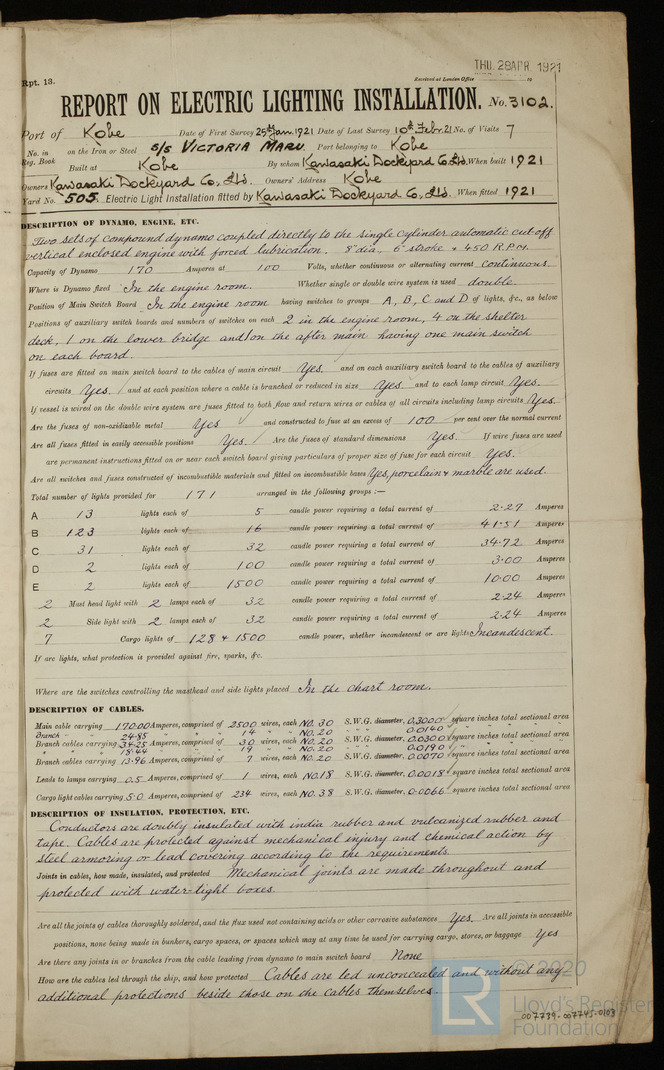 THU. 28 APR. 1921
Rpt. 13.
Received at London Office
REPORT ON ELECTRIC LIGHTING INSTALLATION. No. 3102.
Port of Kobe Date of First Survey 25th Jan. 1921 Date of Last Survey 10th Febr. 21 No. of Visits 7
No. in Reg. Book on the Iron or Steel s/s VICTORIA MARU Port belonging to Kobe
Built at Kobe By whom Kawasaki Dockyard Co. Ltd. When built 1921
Owners Kawasaki Dockyard Co., Ltd. Owners' Address Kobe
Yard No. 505. Electric Light Installation fitted by Kawasaki Dockyard Co., Ltd. When fitted 1921
DESCRIPTION OF DYNAMO, ENGINE, ETC.
Two sets of compound dynamo coupled directly to the single cylinder automatic cut off
vertical enclosed engine with forced lubrication. 8" dia., 6" stroke & 450 R.P.M.
Capacity of Dynamo 170 Amperes at 100 Volts, whether continuous or alternating current continuous.
Where is Dynamo fixed In the engine room. Whether single or double wire system is used double.
Position of Main Switch Board In the engine room having switches to groups A, B, C and D of lights, &c., as below
Positions of auxiliary switch boards and numbers of switches on each 2 in the engine room, 4 on the shelter
deck, 1 on the lower bridge and 1 on the after main having one main switch
on each board.
If fuses are fitted on main switch board to the cables of main circuit Yes. and on each auxiliary switch board to the cables of auxiliary
circuits Yes. and at each position where a cable is branched or reduced in size Yes. and to each lamp circuit Yes.
If vessel is wired on the double wire system are fuses fitted to both flow and return wires or cables of all circuits including lamp circuits Yes.
Are the fuses of non-oxidizable metal Yes and constructed to fuse at an excess of 100 per cent over the normal current
Are all fuses fitted in easily accessible positions Yes. Are the fuses of standard dimensions Yes. If wire fuses are used
are permanent instructions fitted on or near each switch board giving particulars of proper size of fuse for each circuit Yes.
Are all switches and fuses constructed of incombustible materials and fitted on incombustible bases Yes, porcelain & marble are used.
Total number of lights provided for 171 arranged in the following groups :—
A 13 lights each of 5 candle power requiring a total current of 2.27 Amperes
B 123 lights each of 16 candle power requiring a total current of 41.51 Amperes
C 31 lights each of 32 candle power requiring a total current of 34.72 Amperes
D 2 lights each of 100 candle power requiring a total current of 3.00 Amperes
E 2 lights each of 1500 candle power requiring a total current of 10.00 Amperes
2 Mast head light with 2 lamps each of 32 candle power requiring a total current of 2.24 Amperes
2 Side light with 2 lamps each of 32 candle power requiring a total current of 2.24 Amperes
7 Cargo lights of 128 & 1500 candle power, whether incandescent or arc lights Incandescent.
If arc lights, what protection is provided against fire, sparks, &c.
Where are the switches controlling the masthead and side lights placed In the chart room.
DESCRIPTION OF CABLES.
Main cable carrying 170.00 Amperes, comprised of 2500 wires, each No. 30 S.W.G. diameter, 0.3000 square inches total sectional area
Branch " " 24.85 " " " 14 " " No. 20 " " " 0.0140 " " " "
Branch cables carrying 34.25 Amperes, comprised of 30 wires, each No. 20 S.W.G. diameter, 0.0300 square inches total sectional area
" " " 18.44 " " " 19 " " No. 20 " " " 0.0190 " " " "
Branch cables carrying 13.96 Amperes, comprised of 7 wires, each No. 20 S.W.G. diameter, 0.0070 square inches total sectional area
Leads to lamps carrying 0.5 Amperes, comprised of 1 wires, each No. 18 S.W.G. diameter, 0.0018 square inches total sectional area
Cargo light cables carrying 5.0 Amperes, comprised of 234 wires, each No. 38 S.W.G. diameter, 0.0066 square inches total sectional area
DESCRIPTION OF INSULATION, PROTECTION, ETC.
Conductors are doubly insulated with india rubber and vulcanized rubber and
tape. Cables are protected against mechanical injury and chemical action by
steel armoring or lead covering according to the requirements.
Joints in cables, how made, insulated, and protected Mechanical joints are made throughout and
protected with water-tight boxes.
Are all the joints of cables thoroughly soldered, and the flux used not containing acids or other corrosive substances Yes. Are all joints in accessible
positions, none being made in bunkers, cargo spaces, or spaces which may at any time be used for carrying cargo, stores, or baggage Yes
Are there any joints in or branches from the cable leading from dynamo to main switch board None
How are the cables led through the ship, and how protected Cables are led unconcealed and without any
additional protections beside those on the cables themselves.
© 2020
LR Lloyd's Register
Foundation
007739-007745-0103